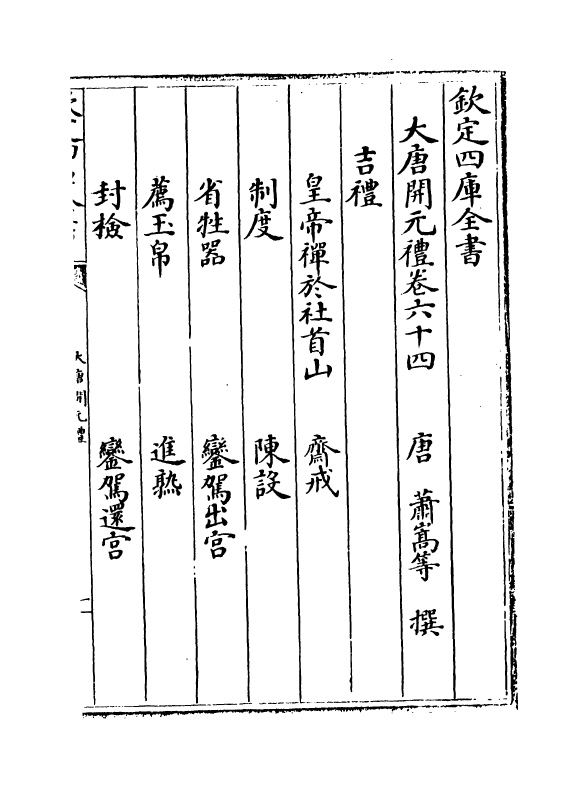 欽定四庫全書
大唐開元禮卷六十四　唐　蕭嵩等　撰
吉禮
皇帝禪於社首山　齋戒
制度　陳設
省牲器　鑾駕出宫
薦玉帛　進熟
封檢　鑾駕還宫
大唐開元禮
一